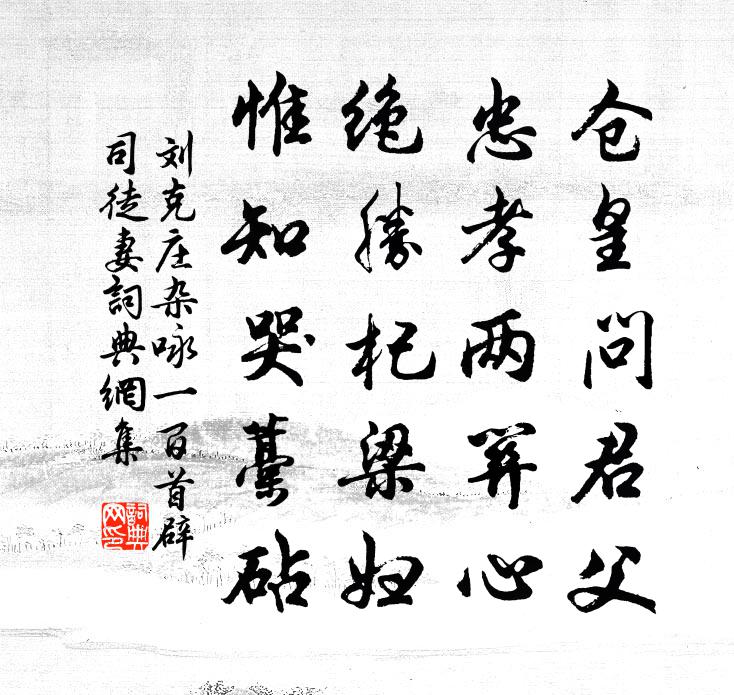 仓皇問君父
忠孝两關心
绝勝杞梁妇
惟知哭藁砧
刘克庄杂咏一百首辟
司徒妻詞典網集
詞典
网印